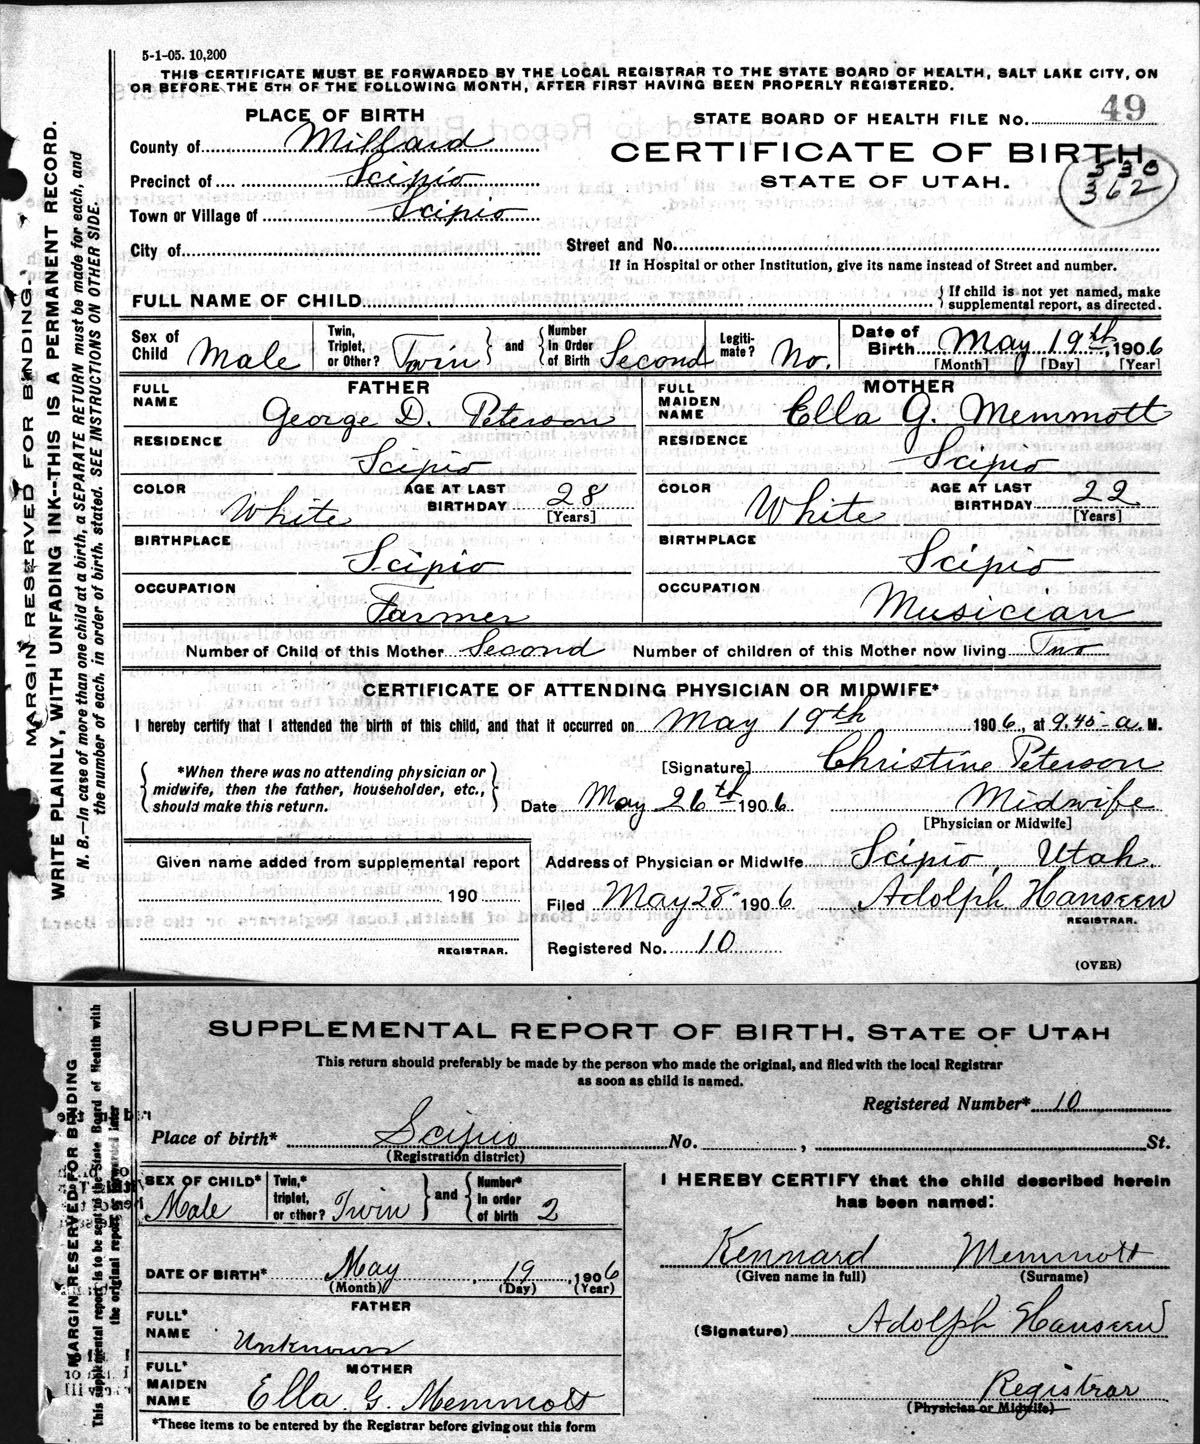 5-1-05. 10,200
THIS CERTIFICATE MUST BE FORWARDED BY THE LOCAL REGISTRAR TO THE STATE BOARD OF HEALTH, SALT LAKE CITY, ON
OR BEFORE THE 5TH OF THE FOLLOWING MONTH, AFTER FIRST HAVING BEEN PROPERLY REGISTERED.
MARGIN RESERVED FOR BINDING.
WRITE PLAINLY, WITH UNFADING INK--THIS IS A PERMANENT RECORD.
N. B.--In case of more than one child at a birth, a SEPARATE RETURN must be made for each, and
the number of each, in order of birth, stated. SEE INSTRUCTIONS ON OTHER SIDE.
PLACE OF BIRTH
County of Millard
Precinct of Scipio
Town or Village of Scipio
City of
STATE BOARD OF HEALTH FILE No. 49
CERTIFICATE OF BIRTH
STATE OF UTAH.
330
362
Street and No.
If in Hospital or other Institution, give its name instead of Street and number.
FULL NAME OF CHILD
If child is not yet named, make
supplemental report, as directed.
Sex of Child Male
Twin, Triplet, or Other? Twin and Number In Order of Birth Second
Legiti-mate? No.
Date of Birth May 19th, 1906
[Month] [Day] [Year]
FATHER
FULL NAME George D. Peterson
RESIDENCE Scipio
COLOR White AGE AT LAST BIRTHDAY 28
[Years]
BIRTHPLACE Scipio
OCCUPATION Farmer
MOTHER
FULL MAIDEN NAME Ella G. Memmott
RESIDENCE Scipio
COLOR White AGE AT LAST BIRTHDAY 22
[Years]
BIRTHPLACE Scipio
OCCUPATION Musician
Number of Child of this Mother Second Number of children of this Mother now living Two
CERTIFICATE OF ATTENDING PHYSICIAN OR MIDWIFE*
I hereby certify that I attended the birth of this child, and that it occurred on May 19th 1906, at 9.45 a. M.
*When there was no attending physician or
midwife, then the father, householder, etc.,
should make this return.
[Signature] Christine Peterson
Date May 26th 1906 Midwife
[Physician or Midwife]
Given name added from supplemental report
190
REGISTRAR.
Address of Physician or Midwife Scipio, Utah.
Filed May 28- 1906 Adolph Hanseen
REGISTRAR.
Registered No. 10
(OVER)
MARGIN RESERVED FOR BINDING
This supplemental report is to be sent to the State Board of Health with
SUPPLEMENTAL REPORT OF BIRTH, STATE OF UTAH
This return should preferably be made by the person who made the original, and filed with the local Registrar
as soon as child is named.
Registered Number* 10
Place of birth* Scipio No. , St.
(Registration district)
SEX OF CHILD* Male
Twin,* triplet, or other? Twin and Number* In order of birth 2
DATE OF BIRTH* May, 19, 1906
(Month) (Day) (Year)
FATHER
FULL* NAME Unknown
MOTHER
FULL* MAIDEN NAME Ella G. Memmott
*These items to be entered by the Registrar before giving out this form
I HEREBY CERTIFY that the child described herein
has been named:
Kennard Memmott
(Given name in full) (Surname)
(Signature) Adolph Hanseen
Registrar
(Physician or Midwife)